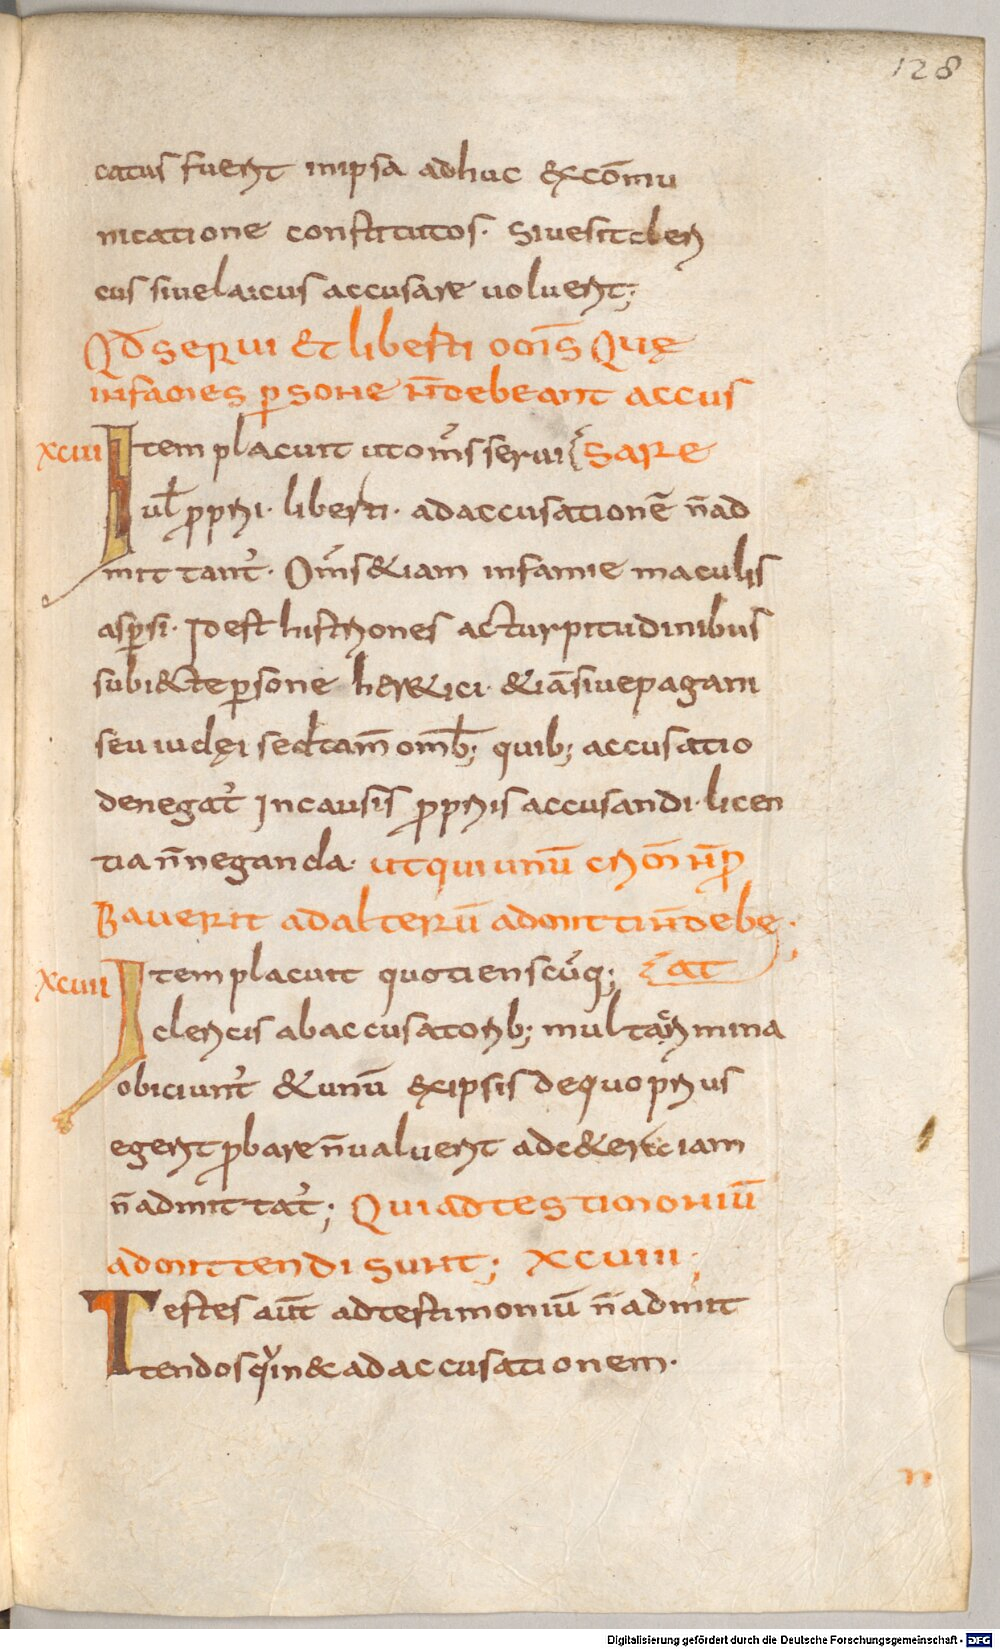 128
catus fuerit inipsa adhuc excōmu
nicatione constitutos· Siuesit cleri
cus siuelaicus accusare uoluerit;
Qđ serui et liberti om̄s Quę
infames p̱sone n̄debeant accus
xcuii Item placuit utom̄s serui sare
ul̄ proprii· liberti· adaccusationē n̄ad
mittant᷑· Om̄s&iam infamie maculis
asp̱si· Idest histriones acturpitudinibus
subiectep̱sone her&ici· &iāsiuepagani
seu iudęi sedtam̄ omīb; quib; accusatio
denegat᷑ Incausis propriis accusandi· licen
tia n̄neganda· utqui unū crim̄ n̄ pro
Bauerit adalterū admitti n̄debe
xcuiii Item placuit quotienscūq; at
clericis abaccusatorib; multa crimina
obiciunt᷑ &unū exipsis dequo prius
egerit probare n̄ualuerit adc&era iam
n̄admittat᷑; Qui ad testimoniū
admittendi sunt; xcuiiii;
Testes aut̄ adtestimoniū n̄admit
tendos qui n&adaccusationem·
n
Digitalisierung gefördert durch die Deutsche Forschungsgemeinschaft - DFG